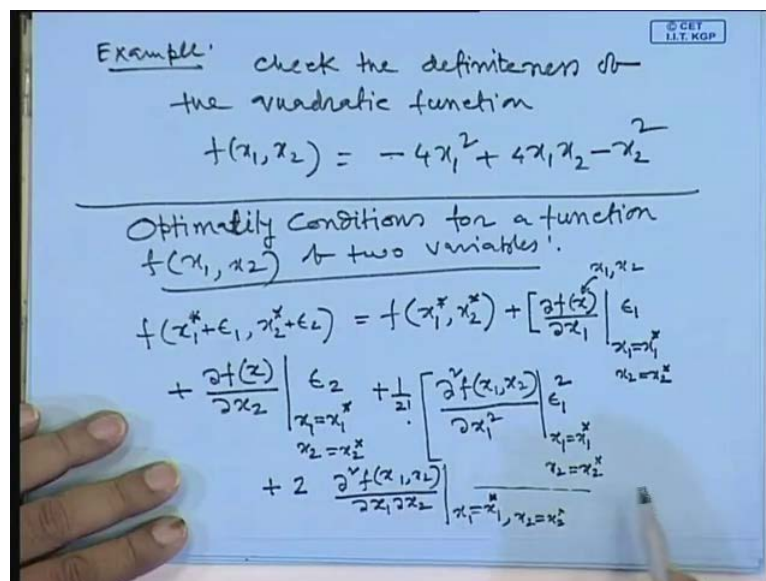 © CET
I.I.T. KGP
Example: Check the definiteness of
the quadratic function
f(x₁, x₂) = -4x₁² + 4x₁x₂ - x₂²
Optimatily Conditions for a function
f(x₁, x₂) of two variables:
x₁, x₂
f(x₁*+ε₁, x₂*+ε₂) = f(x₁*, x₂*) + [∂f(x)/∂x₁ | ε₁
x₁=x₁*
x₂=x₂*
+ ∂f(x)/∂x₂ | ε₂ + 1/2! [∂²f(x₁,x₂)/∂x₁² | ε₁²
x₁=x₁* x₁=x₁*
x₂=x₂* x₂=x₂*
+ 2 ∂²f(x₁,x₂)/∂x₁∂x₂ | x₁=x₁*, x₂=x₂*